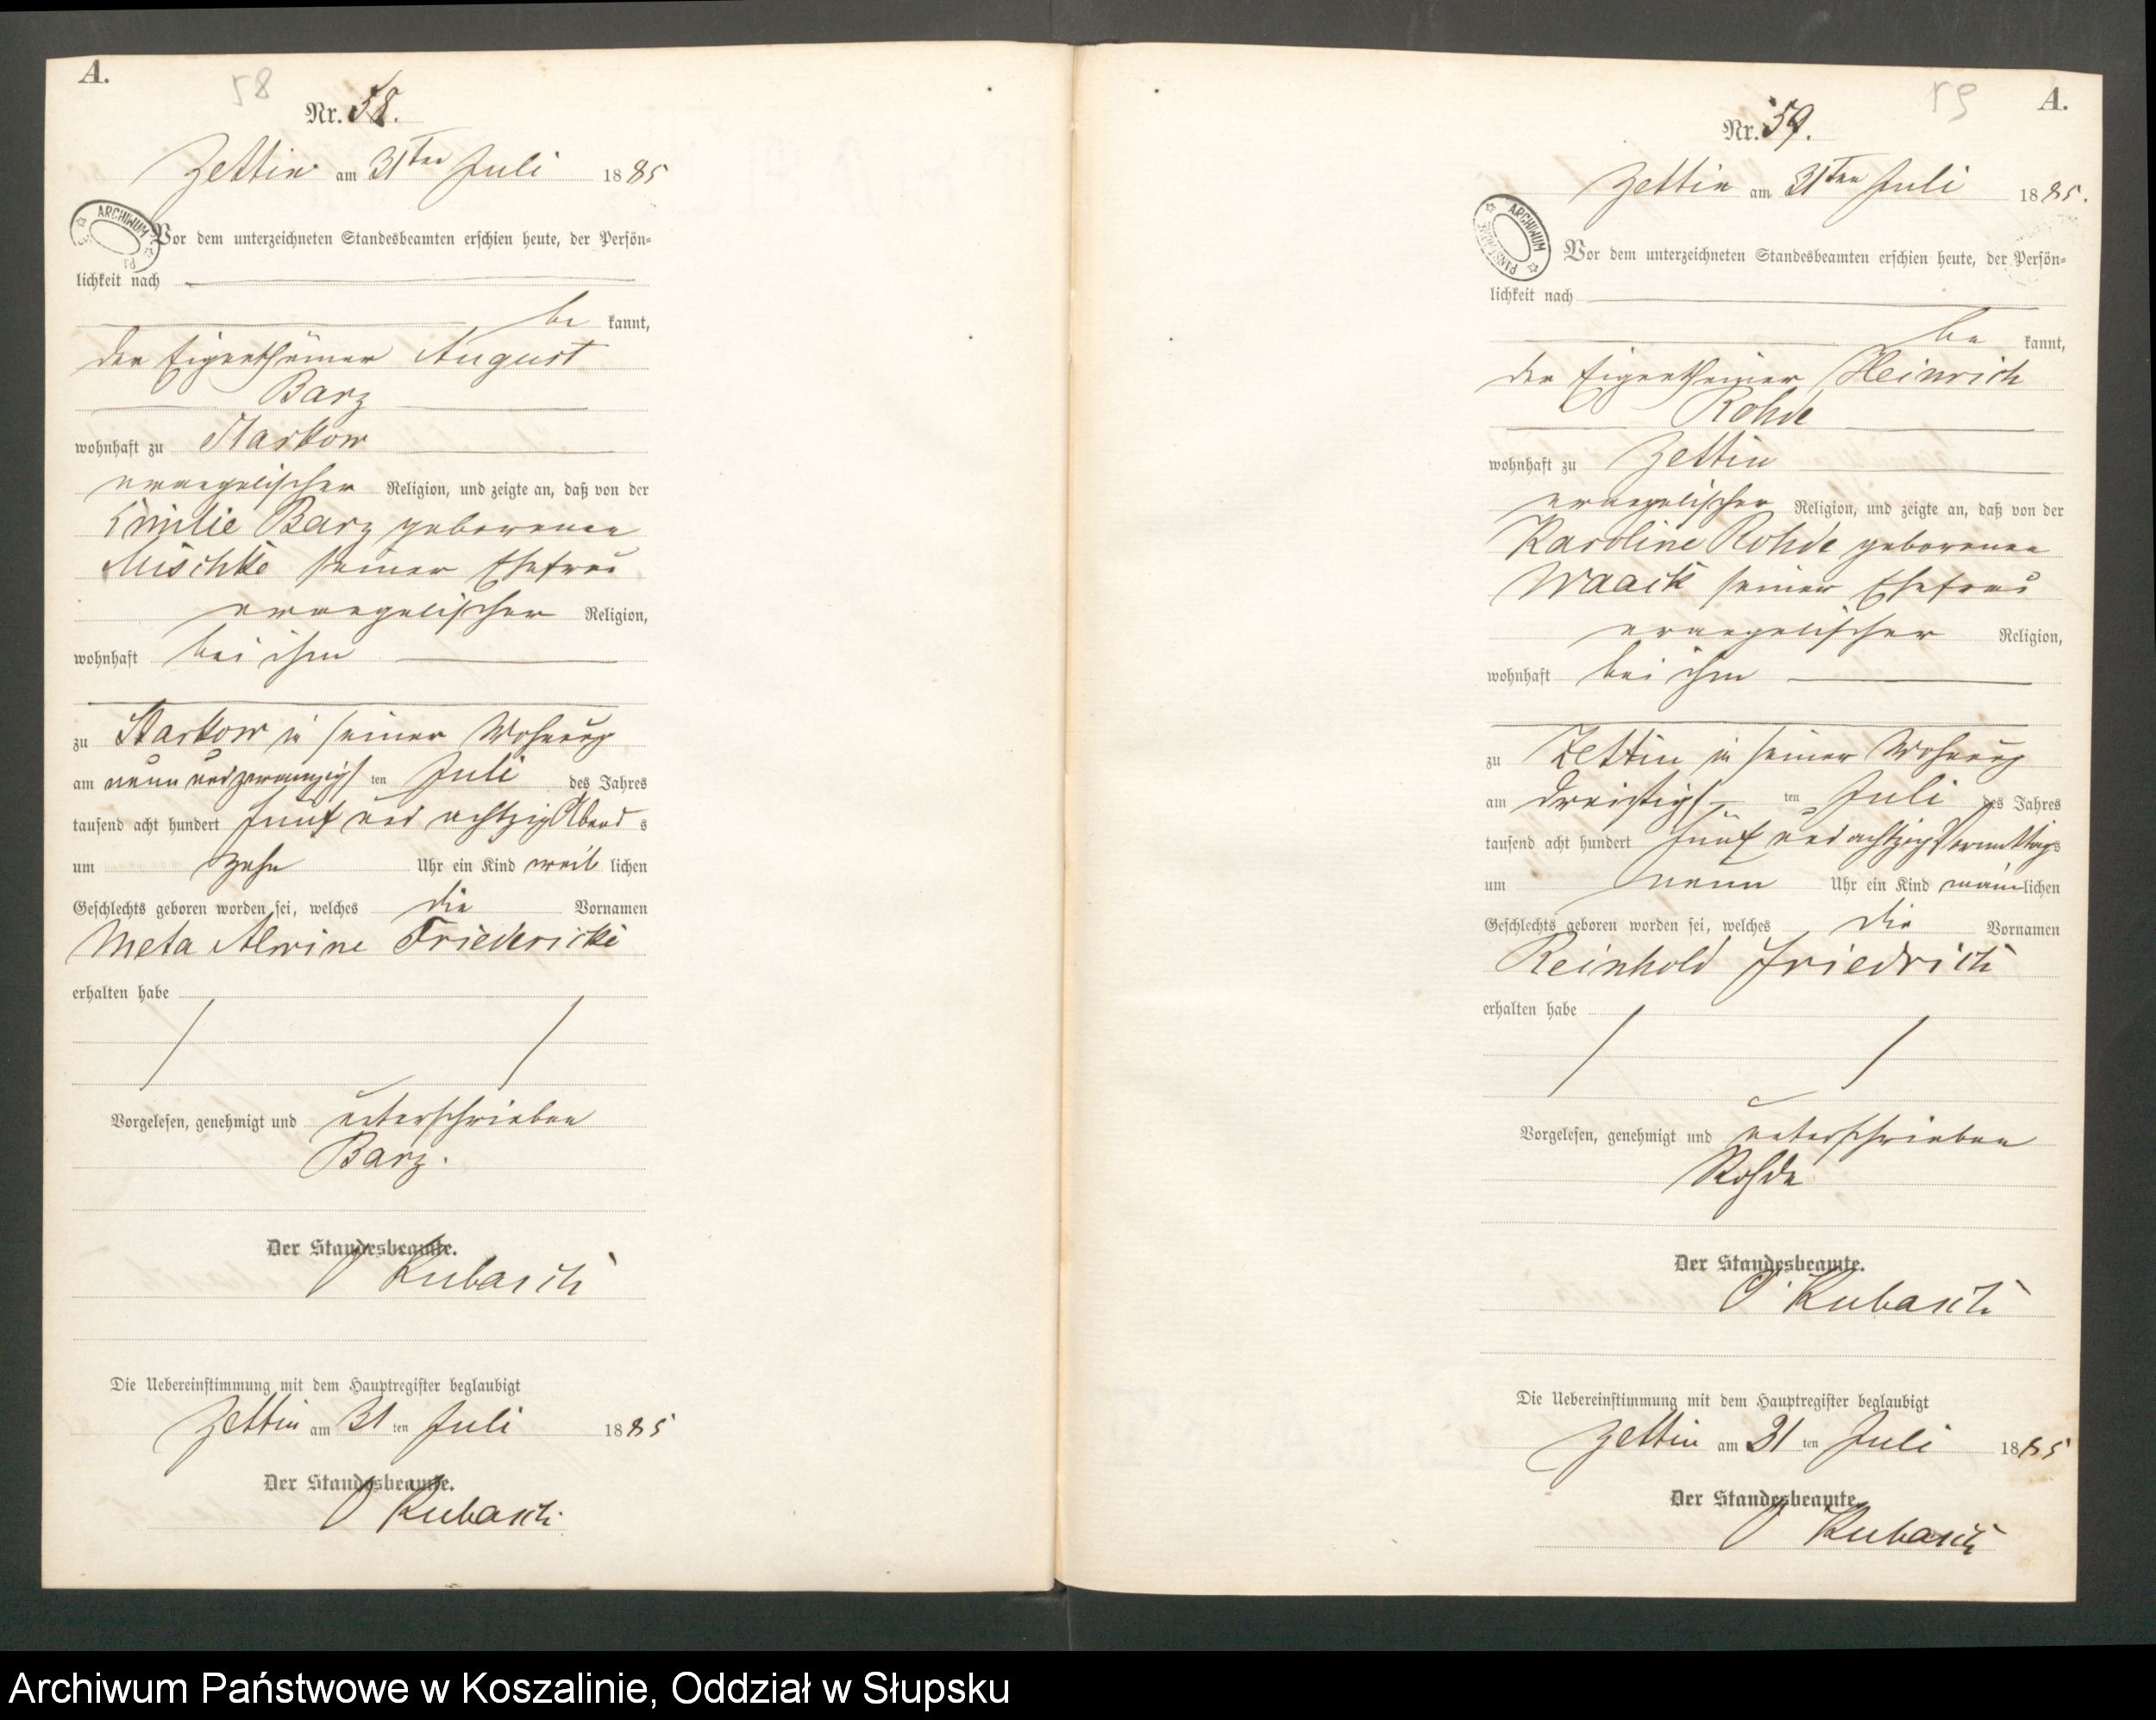 A.
58
Nr. 58.
Zettin am 31ten Juli 1885
ARCHIWUM
Vor dem unterzeichneten Standesbeamten erschien heute, der Persön-
lichkeit nach
be kannt,
der Eigenthümer August
Barz
wohnhaft zu Startow
evangelischer Religion, und zeigte an, daß von der
Emilie Barz geborenen
Mischke seiner Ehefrau
evangelischer Religion,
wohnhaft bei ihm
zu Startow in seiner Wohnung
am neun und zwanzigsten Juli des Jahres
tausend acht hundert fünf und achtzig Abends
um zehn Uhr ein Kind weiblichen
Geschlechts geboren worden sei, welches die Vornamen
Meta Alwine Friedericke
erhalten habe
Vorgelesen, genehmigt und unterschrieben
Barz.
Der Standesbeamte.
Kubasch
Die Uebereinstimmung mit dem Hauptregister beglaubigt
Zettin am 31 ten Juli 1885
Der Standesbeamte.
Kubasch
59
A.
Nr. 59.
Zettin am 31ten Juli 1885.
ARCHIWUM PAŃSTWOWE
Vor dem unterzeichneten Standesbeamten erschien heute, der Persön-
lichkeit nach
be kannt,
der Eigenthümer Heinrich
Rohde
wohnhaft zu Zettin
evangelischer Religion, und zeigte an, daß von der
Karoline Rohde geborenen
Waack seiner Ehefrau
evangelischer Religion,
wohnhaft bei ihm
zu Zettin in seiner Wohnung
am dreißigsten Juli des Jahres
tausend acht hundert fünf und achtzig Vormittags
um neun Uhr ein Kind männlichen
Geschlechts geboren worden sei, welches die Vornamen
Reinhold Friedrich
erhalten habe
Vorgelesen, genehmigt und unterschrieben
Rohde
Der Standesbeamte.
Kubasch
Die Uebereinstimmung mit dem Hauptregister beglaubigt
Zettin am 31 ten Juli 1885
Der Standesbeamte.
Kubasch
Archiwum Państwowe w Koszalinie, Oddział w Słupsku